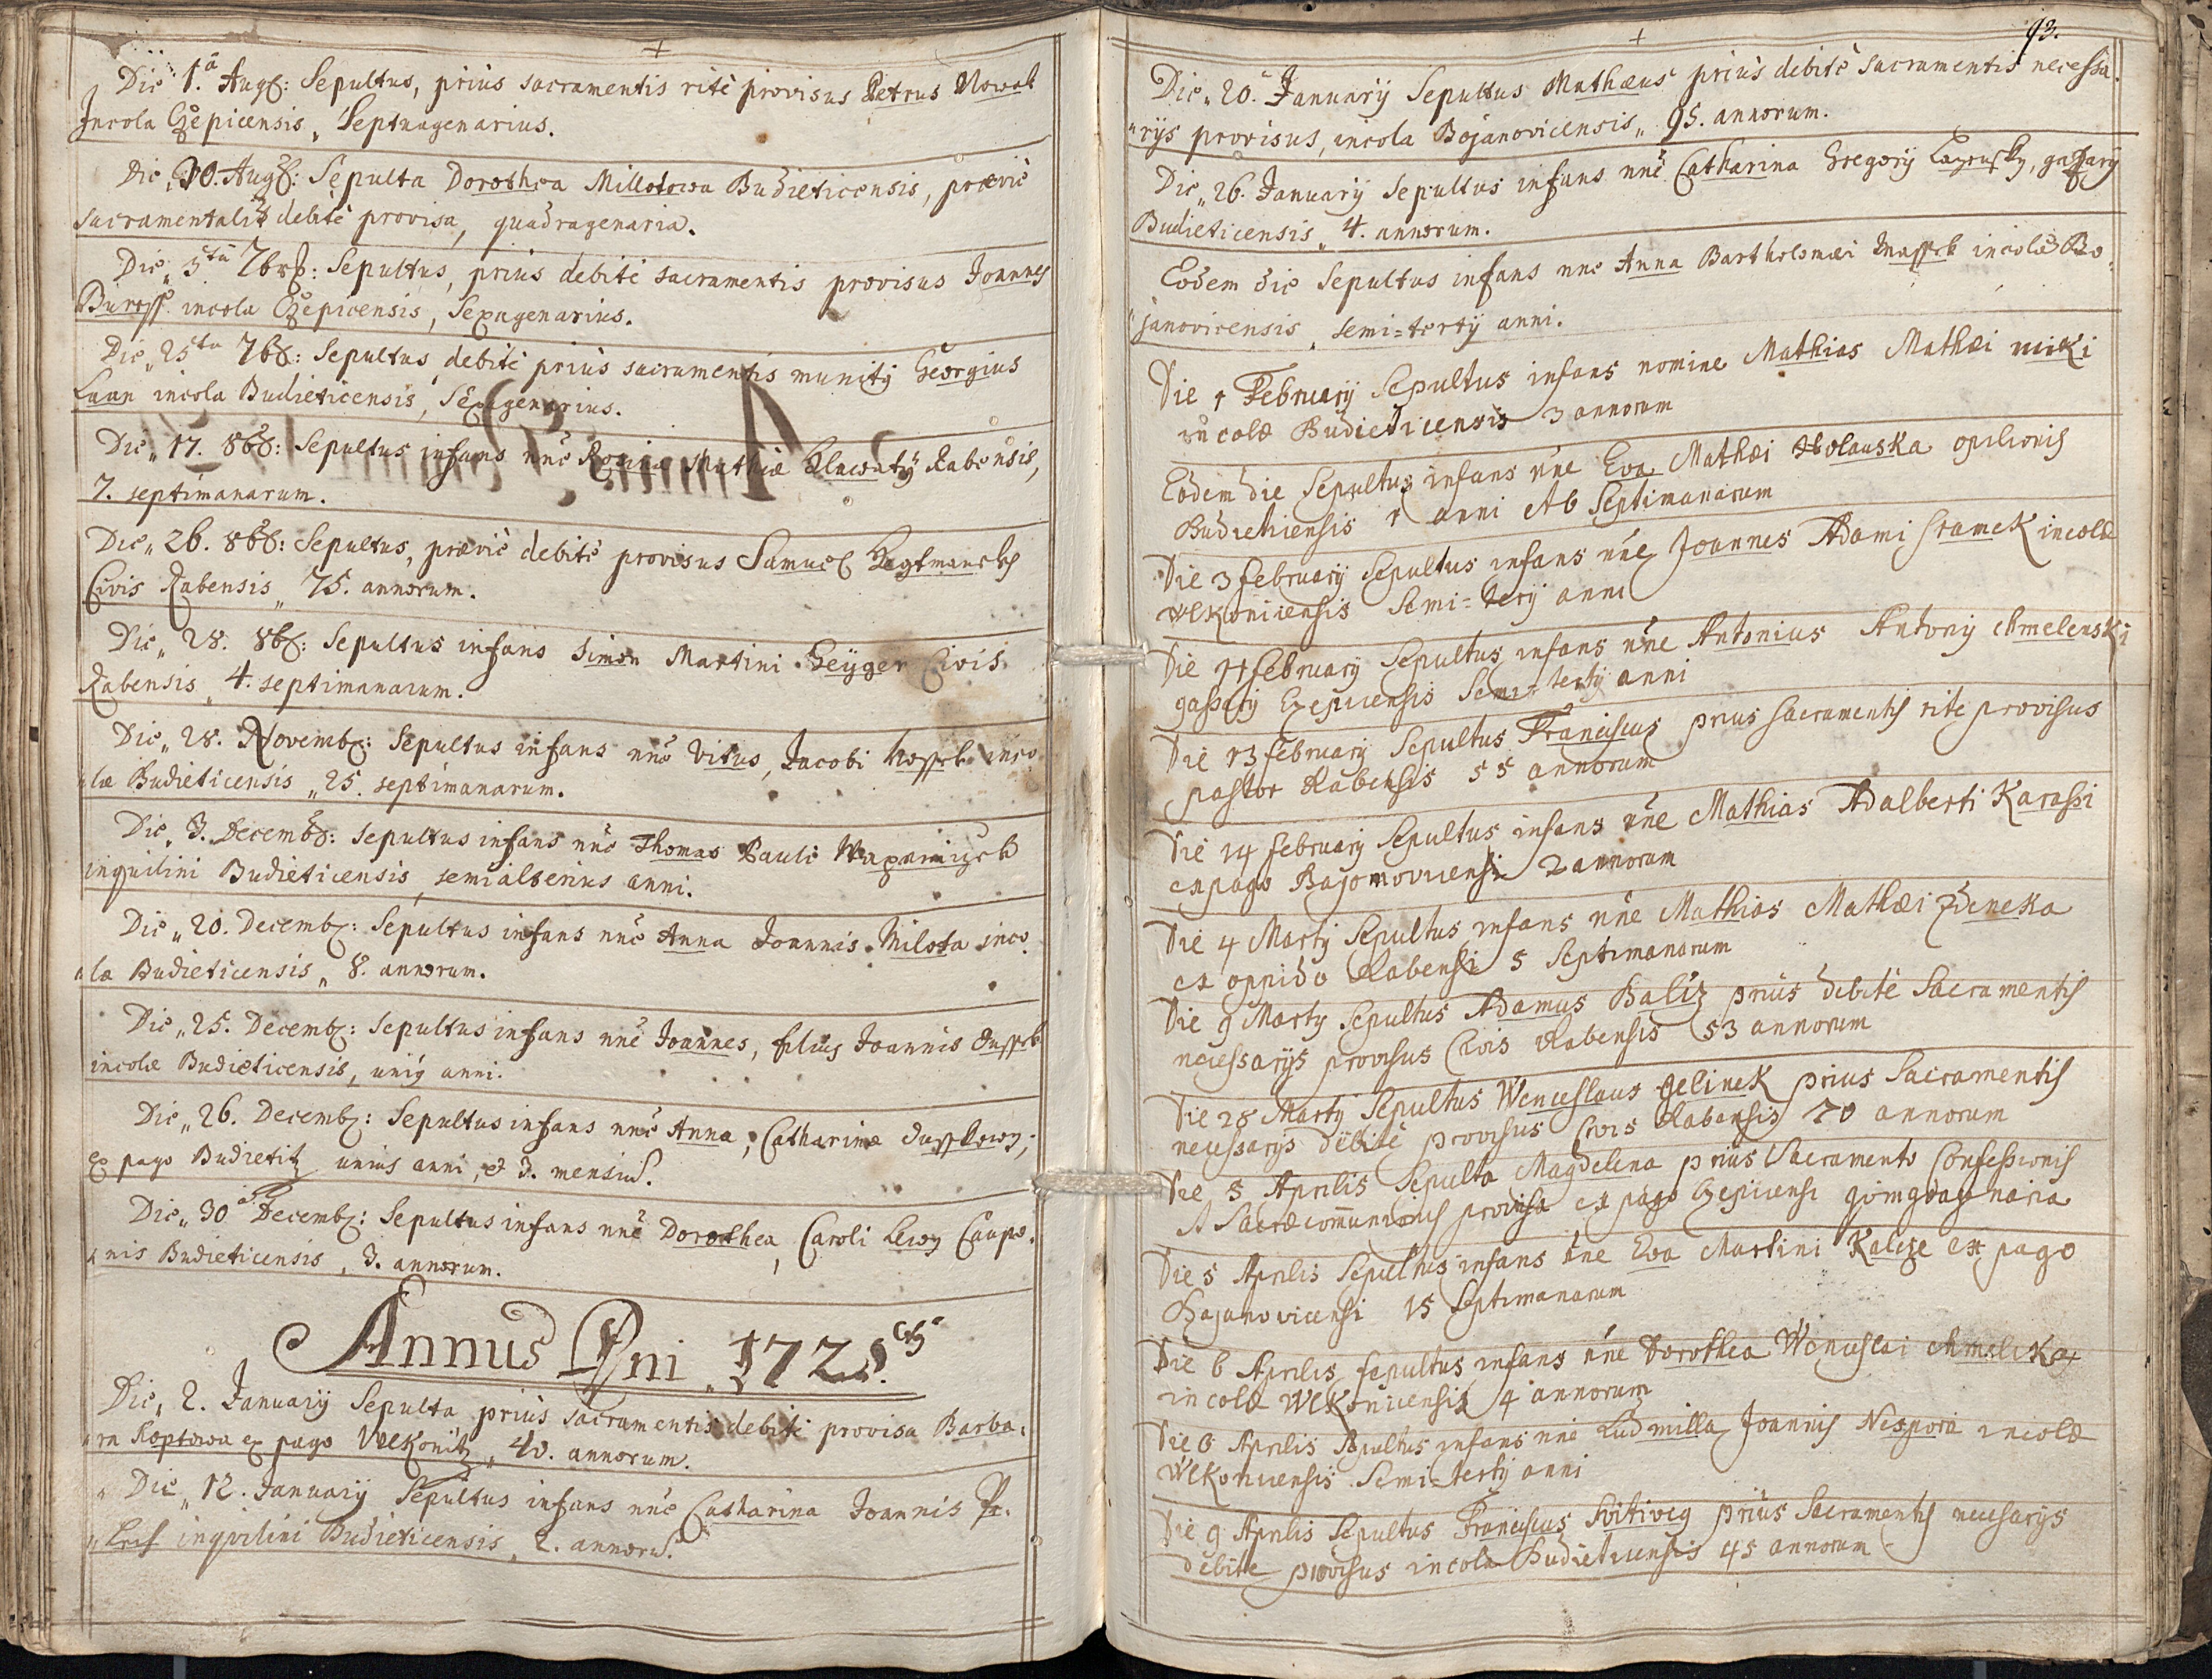 +
Die 1.a Aug: Sepultus, prius sacramentis ritè provisus Petrus Nowak
Incola Czepicensis, Septuagenarius.
Die 30. Aug: Sepulta Dorothea Millotowa Budieticensis, praevie
sacramentalit debitè provisa, quadragenaria.
Die 5ta 7br: Sepultus, prius debitè sacramentis provisus Joannes
incola Czepicensis, Sexagenarius.
Die 25ta 7br: Sepultus, debitè prius sacramentis munitg Georgius
incola Budieticensis, Sexagenarius.
Die 17. 8br: Sepultus infans nne Regina Mathiae Rabensis,
7. septimanarum.
Die 26. 8br: Sepultus, praevie debitè provisus Samuel
Civis Rabensis 75. annorum.
Die 28. 8br: Sepultus infans Simon Martini Geyger Civis
Rabensis 4. septimanarum.
Die 28. Novemb: Sepultus infans nne Vitus, Jacobi inco
lae Budieticensis 25. septimanarum.
Die 3. Decemb: Sepultus infans nne Thomas Pauli
inquilini Budieticensis semialterius anni.
Die 20. Decemb: Sepultus infans nne Anna Joannis Milota inco
lae Budieticensis 8. annorum.
Die 25. Decemb: Sepultus infans nne Joannes, filius Joannis Dussek
incolae Budieticensis, unig anni.
Die 26. Decemb: Sepultus infans nne Anna, Catharinae
ex pago Budietitz unius anni, et 3. mensiu.
Die 30a Decemb: Sepultus infans nne Dorothea, Caroli Caupo
nis Budieticensis, 3. annorum.
Annus Dni 1728.
Die 2. January Sepulta prius sacramentis debitè provisa Barba
ra Koptowa ex pago Wlkonitz 40. annorum.
Die 12. January Sepultus infans nne Catharina Joannis
inquilini Budieticensis 2. annoru.
93.
+
Die 20. January Sepultus Mathaeus prius debitè sacramentis necessa
rys provisus, incola Bojanovicensis 95. annorum.
Die 26. January Sepultus infans nne Catharina Gregory
Budieticensis 4. annorum.
Eodem die Sepultus infans nne Anna Bartholomaei incolae Bo
janovicensis semi-terty anni.
Die 1 February Sepultus infans nomine Mathias Mathaei
incolae Budieticensis 3 annorum
Eodem die Sepultus infans nne Eva Mathaei Holauska opilionis
1 anni et 6 Septimanarum
Die 3 February Sepultus infans nne Joannes Adami Sramek incolae
Wlkonicensis Semi-terty anni
Die February Sepultus infans nne Antonius Antony Chmelenski
Semi-terty anni
Die 13 February Sepultus Franciscus prius Sacramentis rite provisus
pastor Rabensis 55 annorum
Die 14 February Sepultus infans nne Mathias Adalberti Karassi
ex pago Bajonovicensi 2 annorum
Die 4 Marty Sepultus infans nne Mathias Mathaei Zdeneka
ex oppido Rabensi 5 Septimanarum
Die 9 Marty Sepultus Adamus Baliz prius debitè Sacramentis
necessarys provisus Civis Rabensis 53 annorum
Die 28 Marty Sepultus Wenceslaus Jelinek prius Sacramentis
necessarys debitè provisus Civis Rabensis 70 annorum
Die 3 Aprilis Sepulta Magdelena prius Sacramento Confessionis
et Sacrae comunionis provisa ex pago Czepicensi
Die 5 Aprilis Sepultus infans nne Eva Martini ex pago
Bajanovicensi 15 Septimanarum
Die 6 Aprilis sepultus infans nne Dorothea Wenceslai Chmelika
incolae Wlkonicensis 4 annorum
Die 6 Aprilis Sepultus infans nne Ludmilla Joannis Nespora incolae
Wlkonicensis Semi-terty anni
Die 9 Aprilis Sepultus Franciscus prius Sacramentis necessarys
debite provisus incola Budieticensis 45 annorum